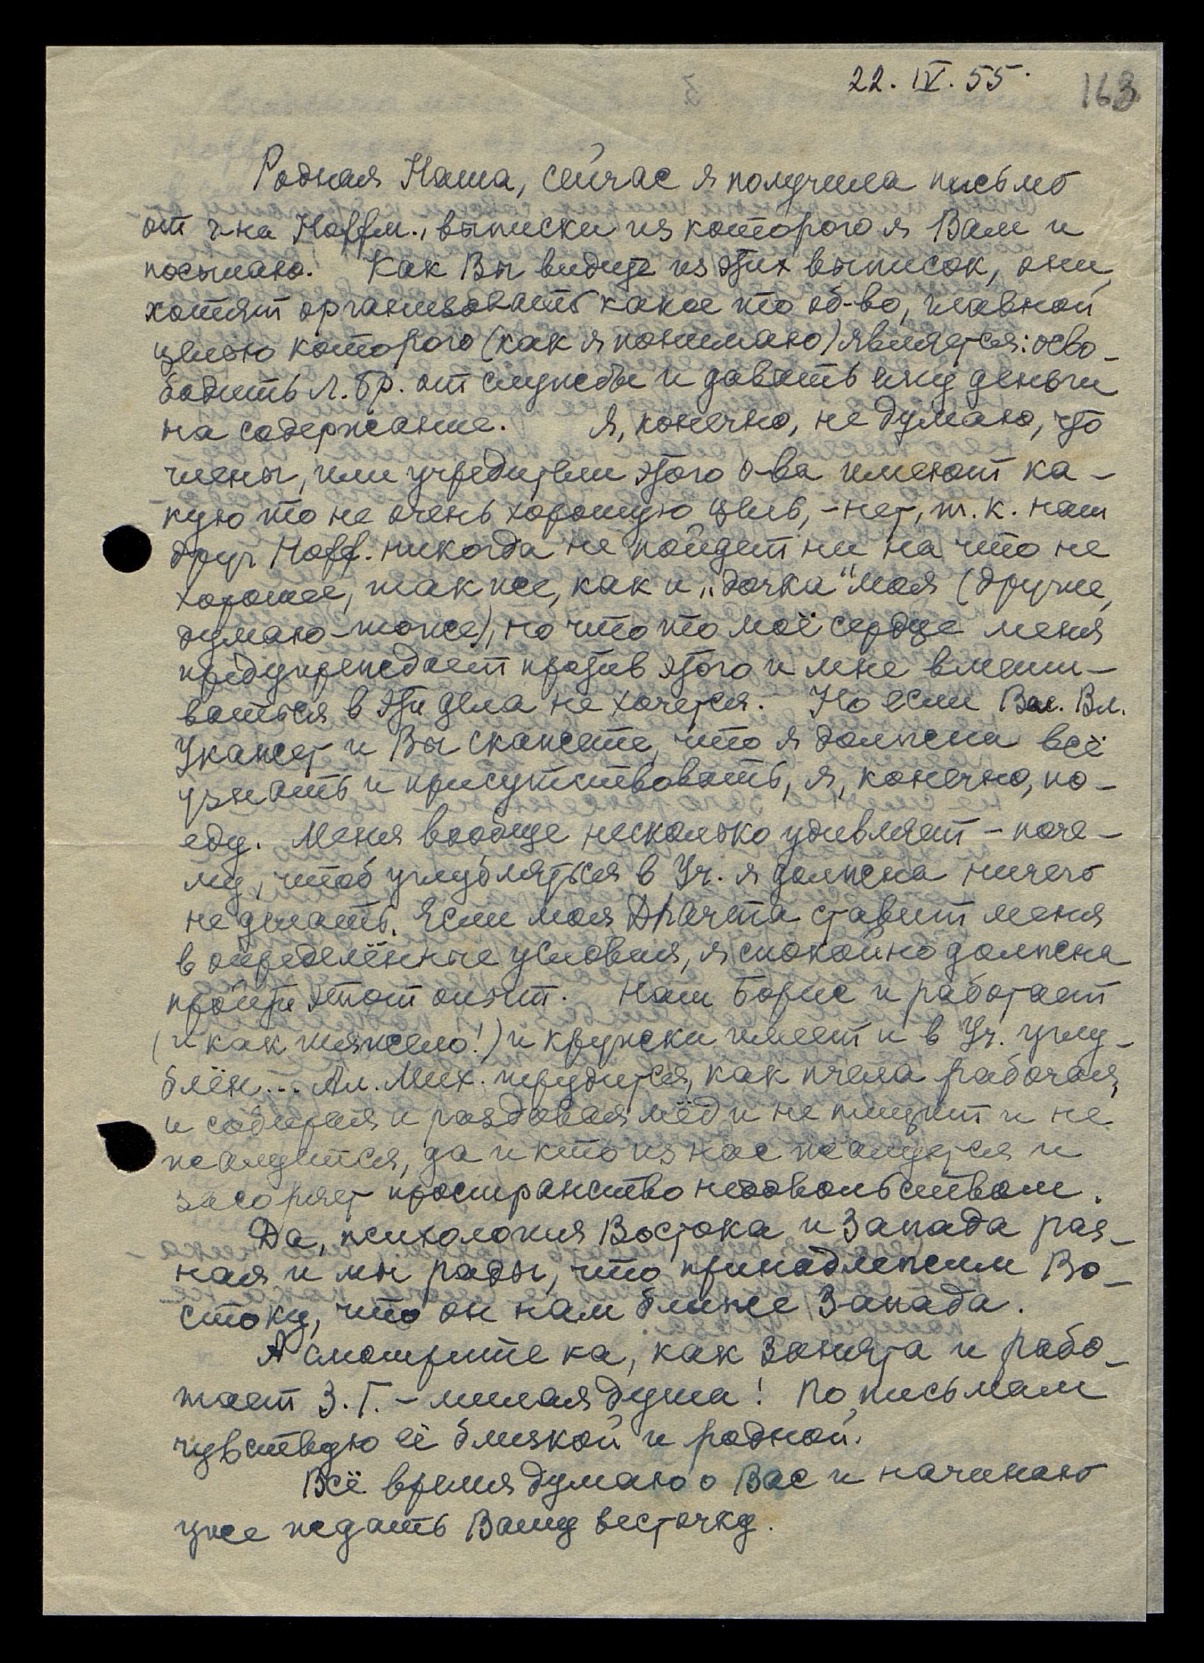 22. IV. 55.
163
Родная Наша, сейчас я получила письмо
от г-на Hoffm., выписки из которого я Вам и
посылаю. Как Вы видите из этих выписок, они
хотят организовать какое то об-во, главной
целью которого (как я понимаю) является: осво-
бодить л. бр. от службы и давать ему деньги
на содержание. Я, конечно, не думаю, что
члены, или учредители этого о-ва имеют ка-
кую то не очень хорошую цель, - нет, т. к. наш
друг Hoff. никогда не пойдет ни на что не
хорошее, так же, как и „дочка" моя (другие,
думаю - тоже), но что то моё сердце меня
предупреждает против этого и мне вмеши-
ваться в эти дела не хочется. Но если Вл. Вл.
Укажет и Вы скажете, что я должна всё
узнать и присутствовать, я, конечно, по-
еду. Меня вообще несколько удивляет - поче-
му, чтоб углубляться в Уч. я должна ничего
не делать. Если моя Драхта ставит меня
в определённые условия, я спокойно должна
пройти этот опыт. Наш Борис и работает
(и как тяжело!) и кружки имеет и в Уч. углу-
блён... Ал. Мих. трудится, как пчела рабочая,
и собирая и раздавая мёд и не пищит и не
жалуется, да и кто из нас жалуется и
засоряет пространство недовольством.
Да, психология Востока и Запада раз-
ная и мы рады, что принадлежим Во-
стоку, что он нам ближе Запада.
А смотрите ка, как занята и рабо-
тает З. Г. - милая душа! По письмам
чувствую её близкой и родной.
Всё время думаю о Вас и начинаю
уже ждать Вашу весточку.